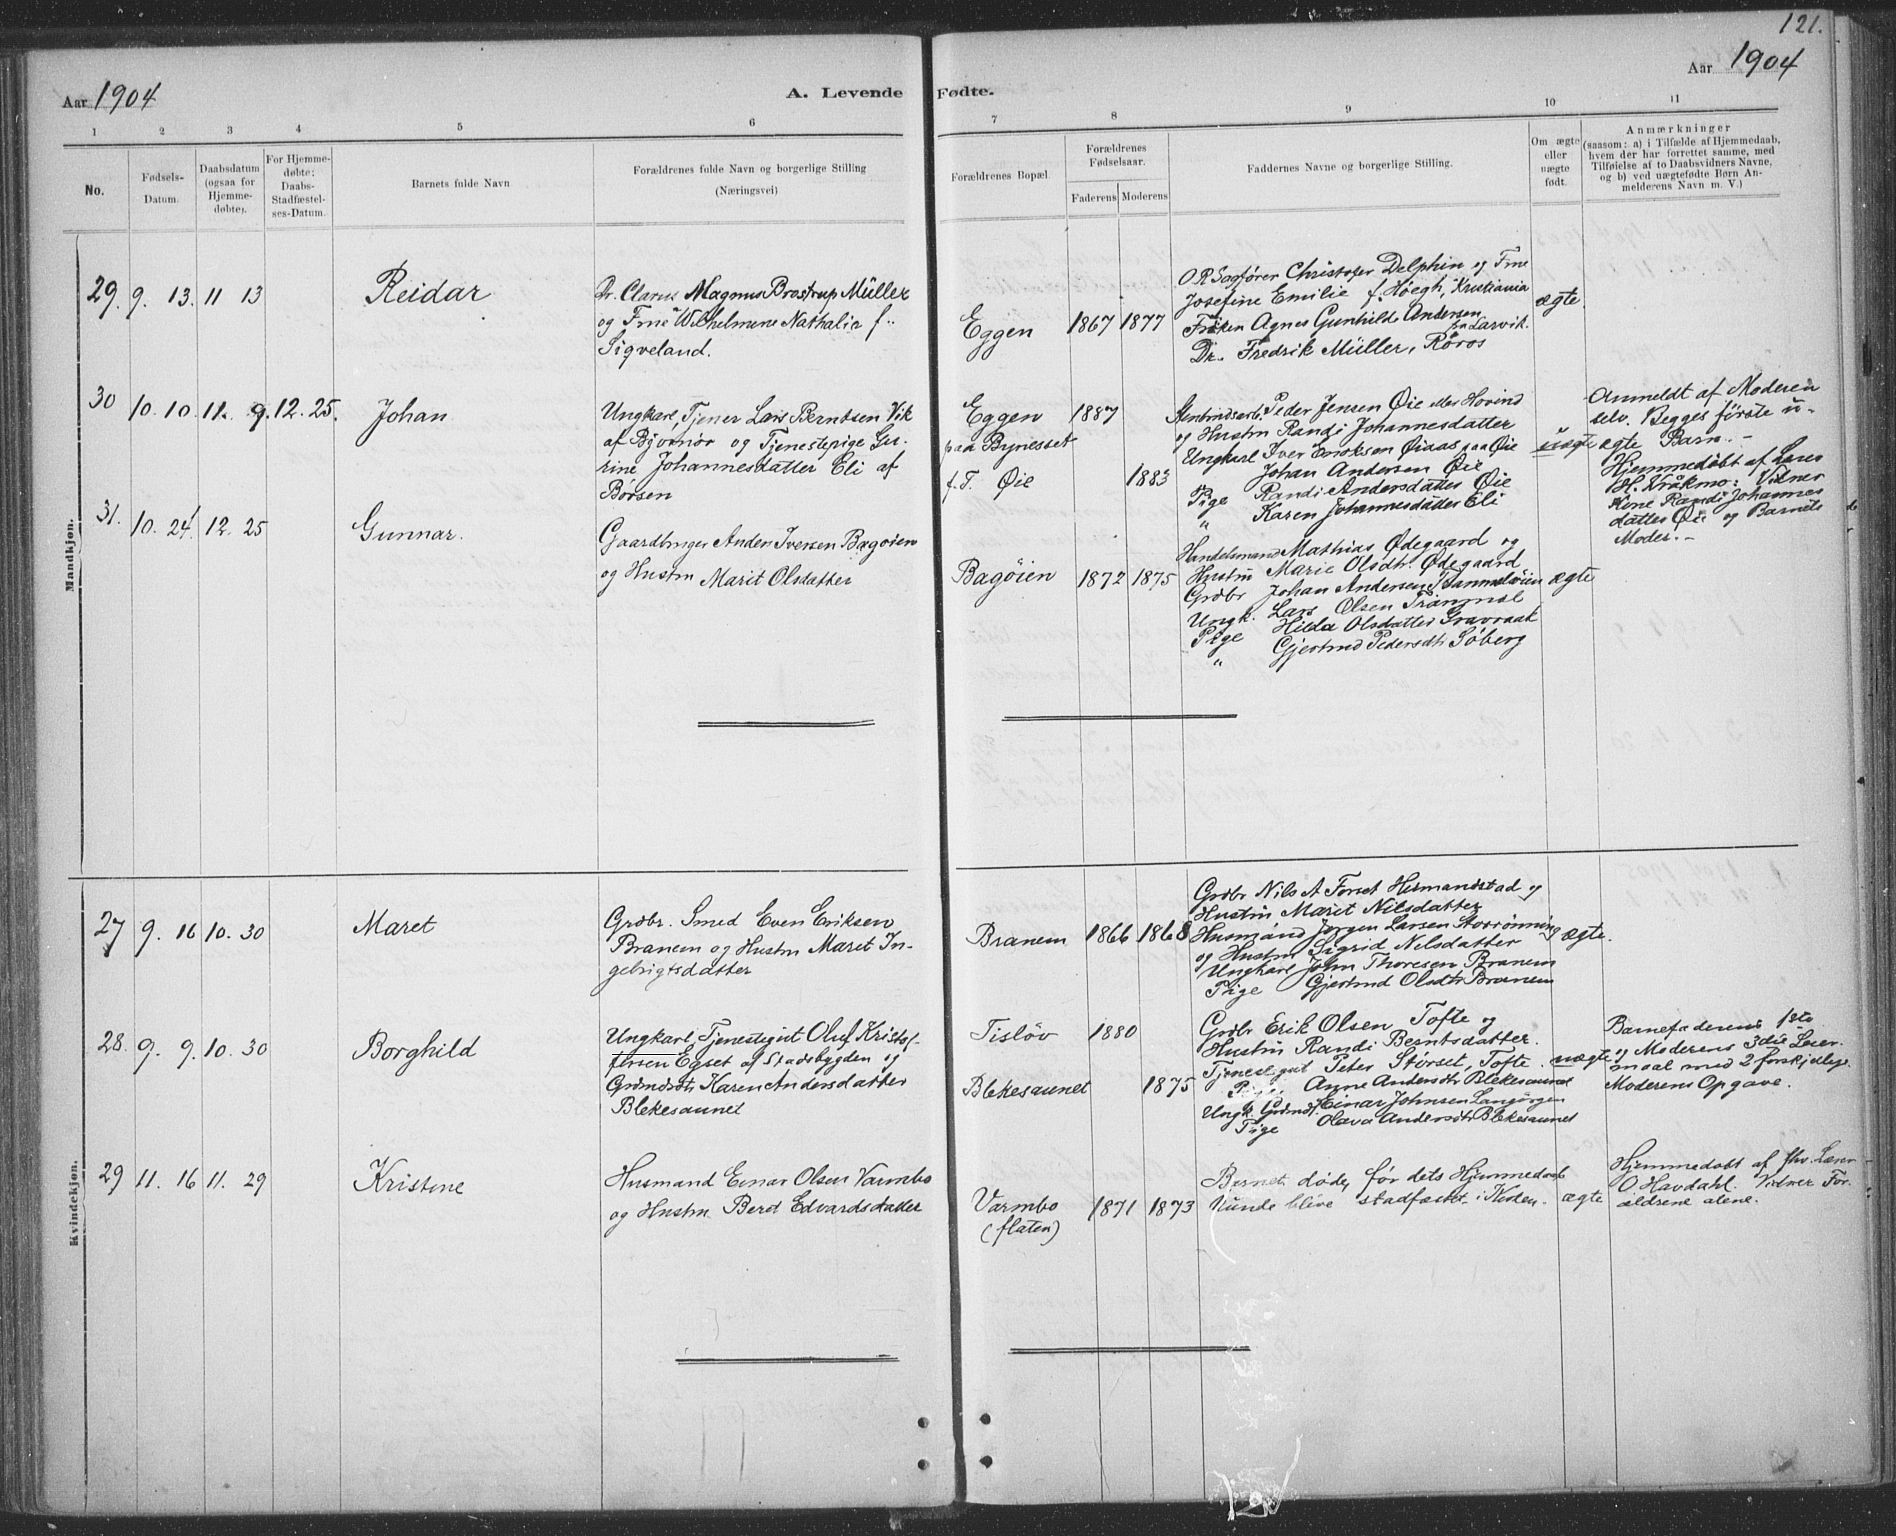 121.
Aar 1904
A. Levende Fødte.
Aar 1904
1 2 3 4 5 6 7 8 9 10 11
No.
Fødsels-Datum.
Daabsdatum (ogsaa for Hjemme-døbte).
For Hjemme-døbte; Daabs-Stadfæstel-ses-Datum.
Barnets fulde Navn
Forældrenes fulde Navn og borgerlige Stilling
(Næringsvei)
Forældrenes Bopæl.
Forældrenes Fødselsaar.
Faderens Moderens
Faddernes Navne og borgerlige Stilling.
Om ægte eller uægte født.
Anmærkninger
(saasom: a) i Tilfælde af Hjemmedaab,
hvem der har forrettet samme, med
Tilføielse af to Daabsvidners Navne,
og b) ved uægtefødte Børn An-
melderens Navn m. V.)
Mandkjøn.
29. 9. 13. 11 13 Reidar
Dr. Clarus Magnus Brostrup Müller
og Frue Wilhelmine Nathalia f.
Sigveland.
Eggen 1867 1877
O.R.Sagfører Christofer Delphin og Frue
Josefine Emilie f. Høegh, Kristiania
Frøken Agnes Gunhilde Andersen
fra Larvik.
Dr. Fredrik Müller, Røros
ægte
30 10. 10. 11. 9. 12. 25. Johan
Ungkarl, Tjener Lars Berntsen Vik
af Byvsnør og Tjenestepige Gu-
rine Johannesdatter Eli af
Børsen
Eggen 1887
paa Bynesset
f. T. Øie 1883
Peder Jensen Øie eller Hovind
og Hustru Randi Johannesdatter
Ungkarl Iver Eriksen Øiaas paa Øie
Johan Andersen Øie
Pige Randi Andersdatter Øie
" Karen Johannesdatter Eli
uægte
Anmeldt af Moderen
selv. Begges første u-
ægte Barn. -
Hjemmedøbt af Lærer
H. Kråkmo: Vidner
Kone Randi Johannes
datter Øie og Barnets
Moder. -
31. 10. 24. 12. 25 Gunnar.
Gaardbruger Anders Iversen Bagøien
og Hustru Marit Olsdatter
Bagøien 1872 1875
Handelsmand Mathias Ødegaard og
Hustru Marie Olsdtr. Ødegaard
Grdbr Johan Andersen
Ungk. Lars Olsen Trammel
Pige Hilda Olsdatter Gravraak
" Gjertrud Pedersdtr Søberg
ægte
Kvindekjøn.
27 9. 16 10. 30 Maret
Grdbr. Smed Even Eriksen
Branem og Hustru Maret In-
gebrigtsdatter
Branem 1866 1868
Grdbr Nils A Forset Hermandstad og
Hustru Maret Nilsdatter
Husmand Jørgen Larsen Storrønning
og Hustru Sigrid Nilsdatter
Ungkarl John Thoresen Branem
Pige Gjertrud Olsdtr Branem
ægte.
28. 9. 9. 10. 30 Borghild
Ungkarl, Tjenestegut Oluf Kristof-
fersen Egset af Stadsbygden og
Grdmdtr Karen Andersdatter
Blekesaunet
Tisløv 1880
Blekesaunet 1875
Grdbr Erik Olsen Tofte og
Hustru Randi Berntsdatter.
Tjenestegut Peter Størset, Tofte
Pige Anne Andersdtr Blekesaunet
Ungk. Grdmds. Einar Johnsen Langørgen
Pige Olava Andersdtr Blekesaunet
uægte
Barnefaderens 1ste
og Moderens 3die Leier-
maal med 2 forskjellige
Moderens Opgave.
29 11. 16 11. 29 Kristine
Husmand Einar Olsen Varmbo
og Hustru Berit Edvardsdatter
Varmbo 1871 1873
(flaten)
Barnet døde, før dets Hjemmedaab
kunde blive stadfæstet i Kirken.
ægte
Hjemmedøbt af fhv. Lærer
O Havdahl. Vidner For-
ældrene alene.